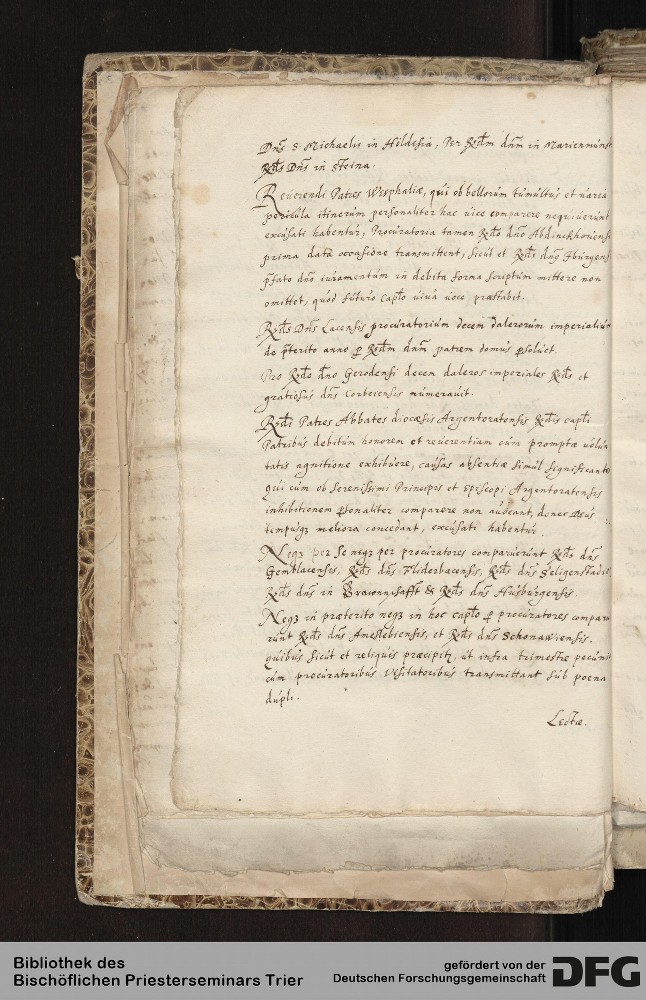 Dns S. Michaelis in Hildesia, Per Rdm dnm in Marienmünst
Rds Dns in Steina.
Reuerendi Patres Wesphaliæ, qui ob bellorum tumultus et uaria
pericula itinerum personaliter hac uice comparere nequiuerunt
excusati habentur, Procuratoria tamen Rdo dno Abdinckhouensi
prima data occasione transmittent, sicut et Rdus dns Iburgens
pfato dno iuramentum in debita forma scriptum mittere non
omittet, quod futuro Caplo uiua uoce præstabit.
Rds Dns Lacensis procuratorium decem dalerorum imperialium
de pterito anno p Rdm dnm patrem domus psoluet.
Pro Rdo dno Gerodensi decem daleros imperiales Rds et
gratiosus dns Corbeiensis numerauit.
Rdi Patres Abbates diocæsis Argentoratensis Rdis capli
Patribus debitum honorem et reuerentiam cum promptæ uolun
tatis agnitione exhibuere, causas absentiæ simul significantes
qui cum ob Serenissimi Principis et Episcopi Argentoratensis
inhibitionem psonaliter comparere non audeant, donec Deus
tempusq3 meliora concedant, excusati habentur.
Neq3 per se neq3 per procuratores comparuerunt Rds dns
Gemblacensis, Rds dns Fliderbacensis, Rds dns Seligenstade
Rds dns in & Rds dns Husburgensis.
Neq3 in præterito neq3 in hoc caplo p procuratores compar
runt Rds dns Ameslebiensis, et Rds dns Schonawiensis.
quibus sicut et reliquis præcipit, ut infra trimestre pecuni
cum procuratoribus Visitatoribus transmittant sub poena
dupli.
Lectæ.
Bibliothek des
Bischöflichen Priesterseminars Trier
gefördert von der
Deutschen Forschungsgemeinschaft
DFG